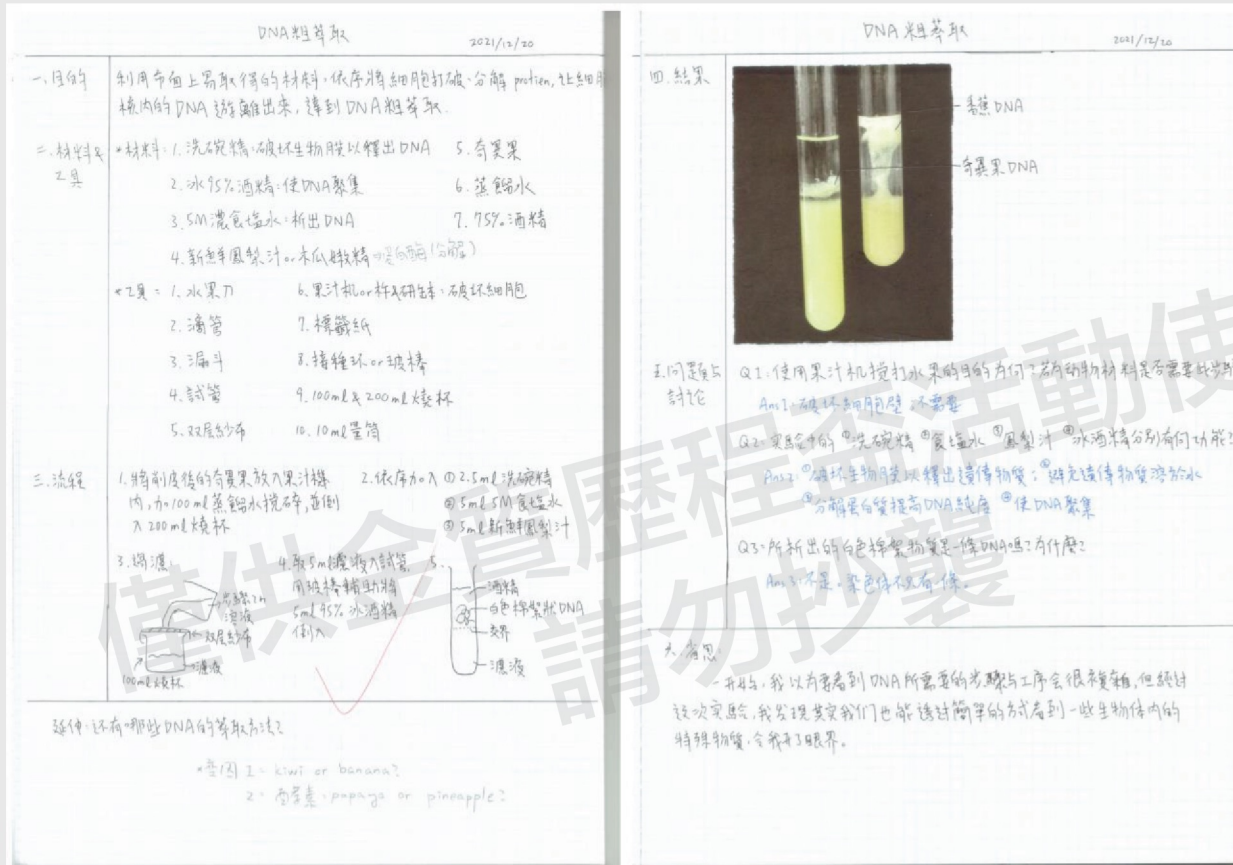 DNA粗萃取
2021/12/20
一、目的
利用市面上易取得的材料,依序將細胞打破、分解 protien,让細胞
核內的DNA 游離出來,達到DNA粗萃取.
二、材料&
工具
*材料:1. 洗碗精:破坏生物膜以釋出DNA 5. 奇異果
2. 冰95%酒精:使DNA聚集 6. 蒸餾水
3. 5M濃食塩水:析出DNA 7. 75%酒精
4. 新鮮鳳梨汁or木瓜嫩精 蛋白酶(分解)
*工具:1. 水果刀 6. 果汁机or杵&研缽:破坏細胞
2. 滴管 7. 標籤紙
3. 漏斗 8. 接種环or玻棒
4. 試管 9. 100ml&200ml燒杯
5. 双层紗布 10. 10ml量筒
三、流程
1. 將削皮後的奇異果放入果汁機
內,加100ml蒸餾水攪碎,並倒
入200ml燒杯
2. 依序加入 ①2.5ml洗碗精
②5ml 5M食塩水
③5ml新鮮鳳梨汁
3. 過濾
步驟2的
溶液
双层紗布
濾液
100ml燒杯
4. 取5ml濾液入試管,
用玻棒輔助將
5ml 95%冰酒精
倒入
5.
酒精
白色棉絮狀DNA
交界
濾液
延伸:还有哪些DNA的萃取方法?
*意図 1. kiwi or banana?
2. papaya or pinnapple?
DNA粗萃取
2021/12/20
四、結果
香蕉DNA
奇異果DNA
五、问題与
討论
Q1:使用果汁机攪打水果的目的為何?若為动物材料是否需要此步驟
Ans1:破坏細胞壁,不需要
Q2:实驗中的 ①洗碗精 ②食塩水 ③鳳梨汁 ④冰酒精分別有何功能?
Ans2:①破坏生物膜以釋出遺傳物質;②避免遺傳物質溶於水
③分解蛋白質提高DNA純度 ④使DNA聚集
Q3:所析出的白色棉絮物質是一條DNA嗎?為什麼?
Ans3:不是,染色体不只有一條。
六、省思:
一开始,我以為要看到DNA所需要的步驟与工序会很複雜,但經过
这次实驗,我发现其实我们也能透过簡單的方式看到一些生物体內的
特殊物質,令我开了眼界。
僅供金質歷程盃活動使
請勿抄襲